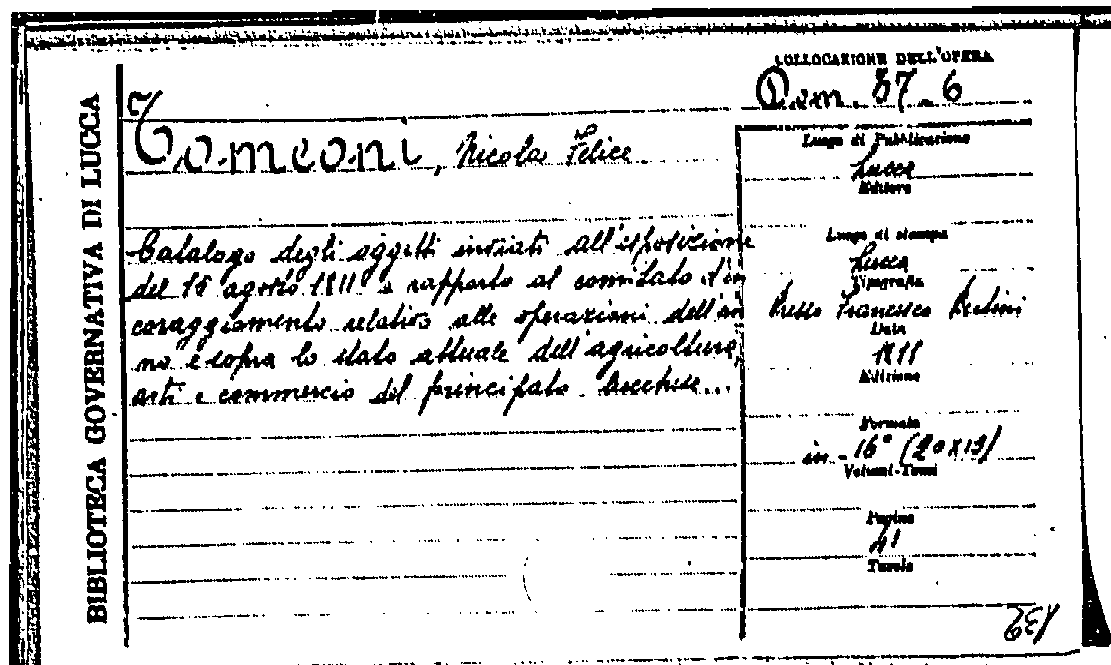 BIBLIOTECA GOVERNATIVA DI LUCCA
COLLOCAZIONE DELL'OPERA
Dom. 37.6
Tomeoni, Nicolao Felice
Catalogo degli oggetti inviati all'esposizione
del 15 agosto 1811 e rapporto al comitato d'in
coraggiamento relativo alle operazioni dell'an
no e sopra lo stato attuale dell'agricoltura,
arti e commercio del principato lucchese...
Luogo di Pubblicazione
Lucca
Editore
Luogo di stampa
Lucca
Tipografia
Presso Francesco Bertini
Data
1811
Edizione
Formato
in-16° (20x13)
Volumi-Tomi
Pagine
41
Tavole